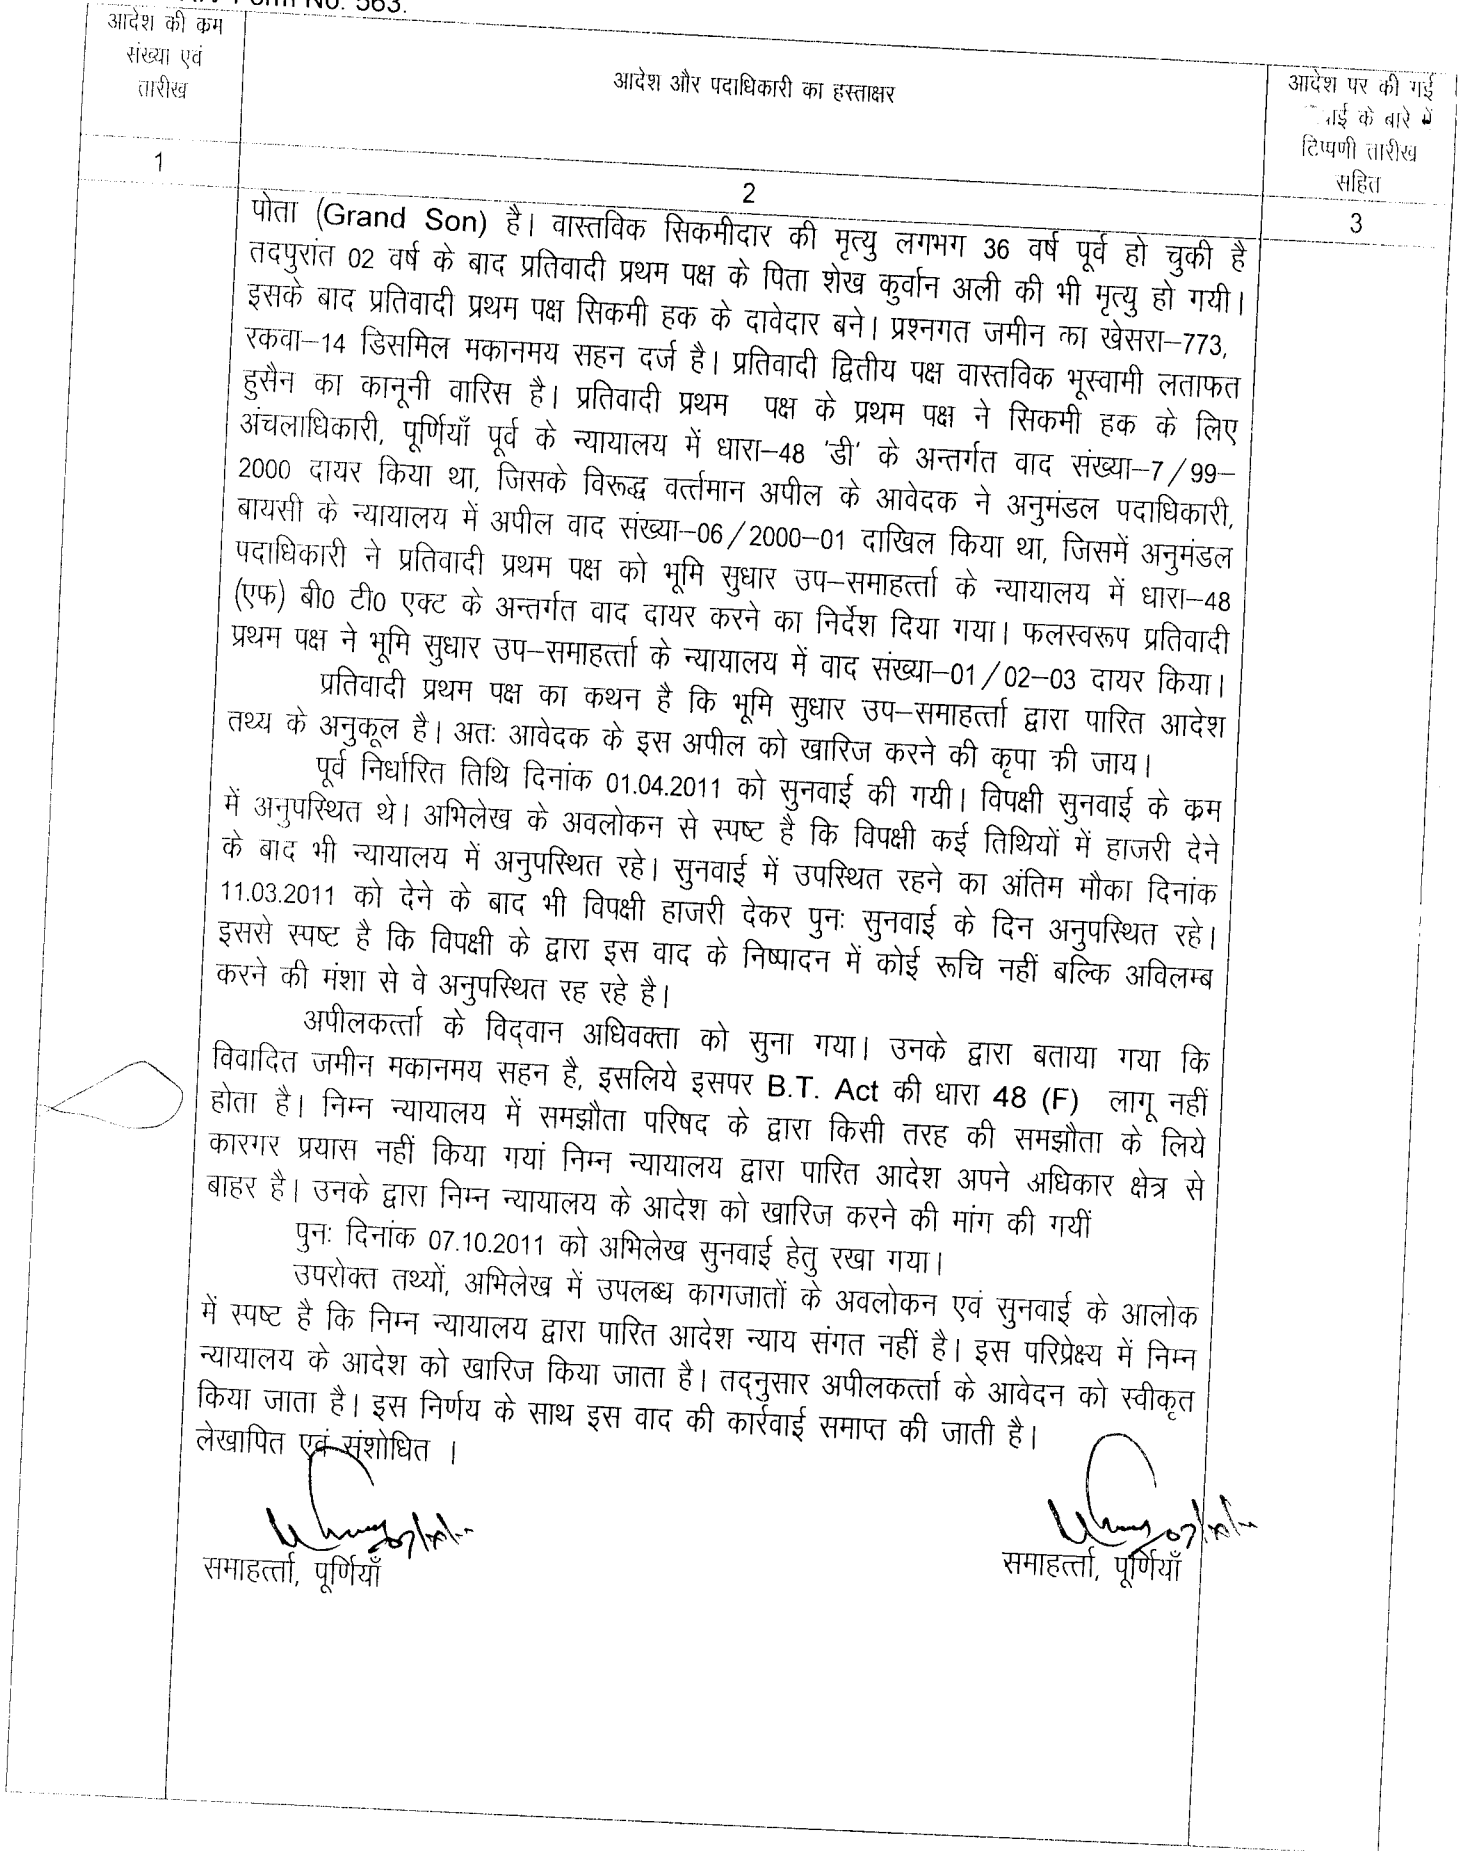 Form No. 563.
आदेश की कम
संख्या एवं
तारीख
आदेश और पदाधिकारी का हस्ताक्षर
आदेश पर की गई
के बारे में
टिप्पणी तारीख
सहित
1
2
3
पोता (Grand Son) है। वास्तविक सिकमीदार की मृत्यु लगभग 36 वर्ष पूर्व हो चुकी है
तदपुरांत 02 वर्ष के बाद प्रतिवादी प्रथम पक्ष के पिता शेख कुर्वान अली की भी मृत्यु हो गयी।
इसके बाद प्रतिवादी प्रथम पक्ष सिकमी हक के दावेदार बने। प्रश्नगत जमीन का खेसरा–773,
रकवा–14 डिसमिल मकानमय सहन दर्ज है। प्रतिवादी द्वितीय पक्ष वास्तविक भूस्वामी लताफत
हुसैन का कानूनी वारिस है। प्रतिवादी प्रथम पक्ष के प्रथम पक्ष ने सिकमी हक के लिए
अंचलाधिकारी, पूर्णियाँ पूर्व के न्यायालय में धारा–48 'डी' के अन्तर्गत वाद संख्या–7/99–
2000 दायर किया था, जिसके विरूद्ध वर्त्तमान अपील के आवेदक ने अनुमंडल पदाधिकारी,
बायसी के न्यायालय में अपील वाद संख्या–06/2000–01 दाखिल किया था, जिसमें अनुमंडल
पदाधिकारी ने प्रतिवादी प्रथम पक्ष को भूमि सुधार उप–समाहर्त्ता के न्यायालय में धारा–48
(एफ) बी0 टी0 एक्ट के अन्तर्गत वाद दायर करने का निर्देश दिया गया। फलस्वरूप प्रतिवादी
प्रथम पक्ष ने भूमि सुधार उप–समाहर्त्ता के न्यायालय में वाद संख्या–01/02–03 दायर किया।
प्रतिवादी प्रथम पक्ष का कथन है कि भूमि सुधार उप–समाहर्त्ता द्वारा पारित आदेश
तथ्य के अनुकूल है। अतः आवेदक के इस अपील को खारिज करने की कृपा की जाय।
पूर्व निर्धारित तिथि दिनांक 01.04.2011 को सुनवाई की गयी। विपक्षी सुनवाई के क्रम
में अनुपस्थित थे। अभिलेख के अवलोकन से स्पष्ट है कि विपक्षी कई तिथियों में हाजरी देने
के बाद भी न्यायालय में अनुपस्थित रहे। सुनवाई में उपस्थित रहने का अंतिम मौका दिनांक
11.03.2011 को देने के बाद भी विपक्षी हाजरी देकर पुनः सुनवाई के दिन अनुपस्थित रहे।
इससे स्पष्ट है कि विपक्षी के द्वारा इस वाद के निष्पादन में कोई रूचि नहीं बल्कि अविलम्ब
करने की मंशा से वे अनुपस्थित रह रहे है।
अपीलकर्त्ता के विद्वान अधिवक्ता को सुना गया। उनके द्वारा बताया गया कि
विवादित जमीन मकानमय सहन है, इसलिये इसपर B.T. Act की धारा 48 (F) लागू नहीं
होता है। निम्न न्यायालय में समझौता परिषद के द्वारा किसी तरह की समझौता के लिये
कारगर प्रयास नहीं किया गयां निम्न न्यायालय द्वारा पारित आदेश अपने अधिकार क्षेत्र से
बाहर है। उनके द्वारा निम्न न्यायालय के आदेश को खारिज करने की मांग की गयीं
पुनः दिनांक 07.10.2011 को अभिलेख सुनवाई हेतु रखा गया।
उपरोक्त तथ्यों, अभिलेख में उपलब्ध कागजातों के अवलोकन एवं सुनवाई के आलोक
में स्पष्ट है कि निम्न न्यायालय द्वारा पारित आदेश न्याय संगत नहीं है। इस परिप्रेक्ष्य में निम्न
न्यायालय के आदेश को खारिज किया जाता है। तद्नुसार अपीलकर्त्ता के आवेदन को स्वीकृत
किया जाता है। इस निर्णय के साथ इस वाद की कार्रवाई समाप्त की जाती है।
लेखापित एवं संशोधित ।
समाहर्त्ता, पूर्णियाँ
समाहर्त्ता, पूर्णियाँ